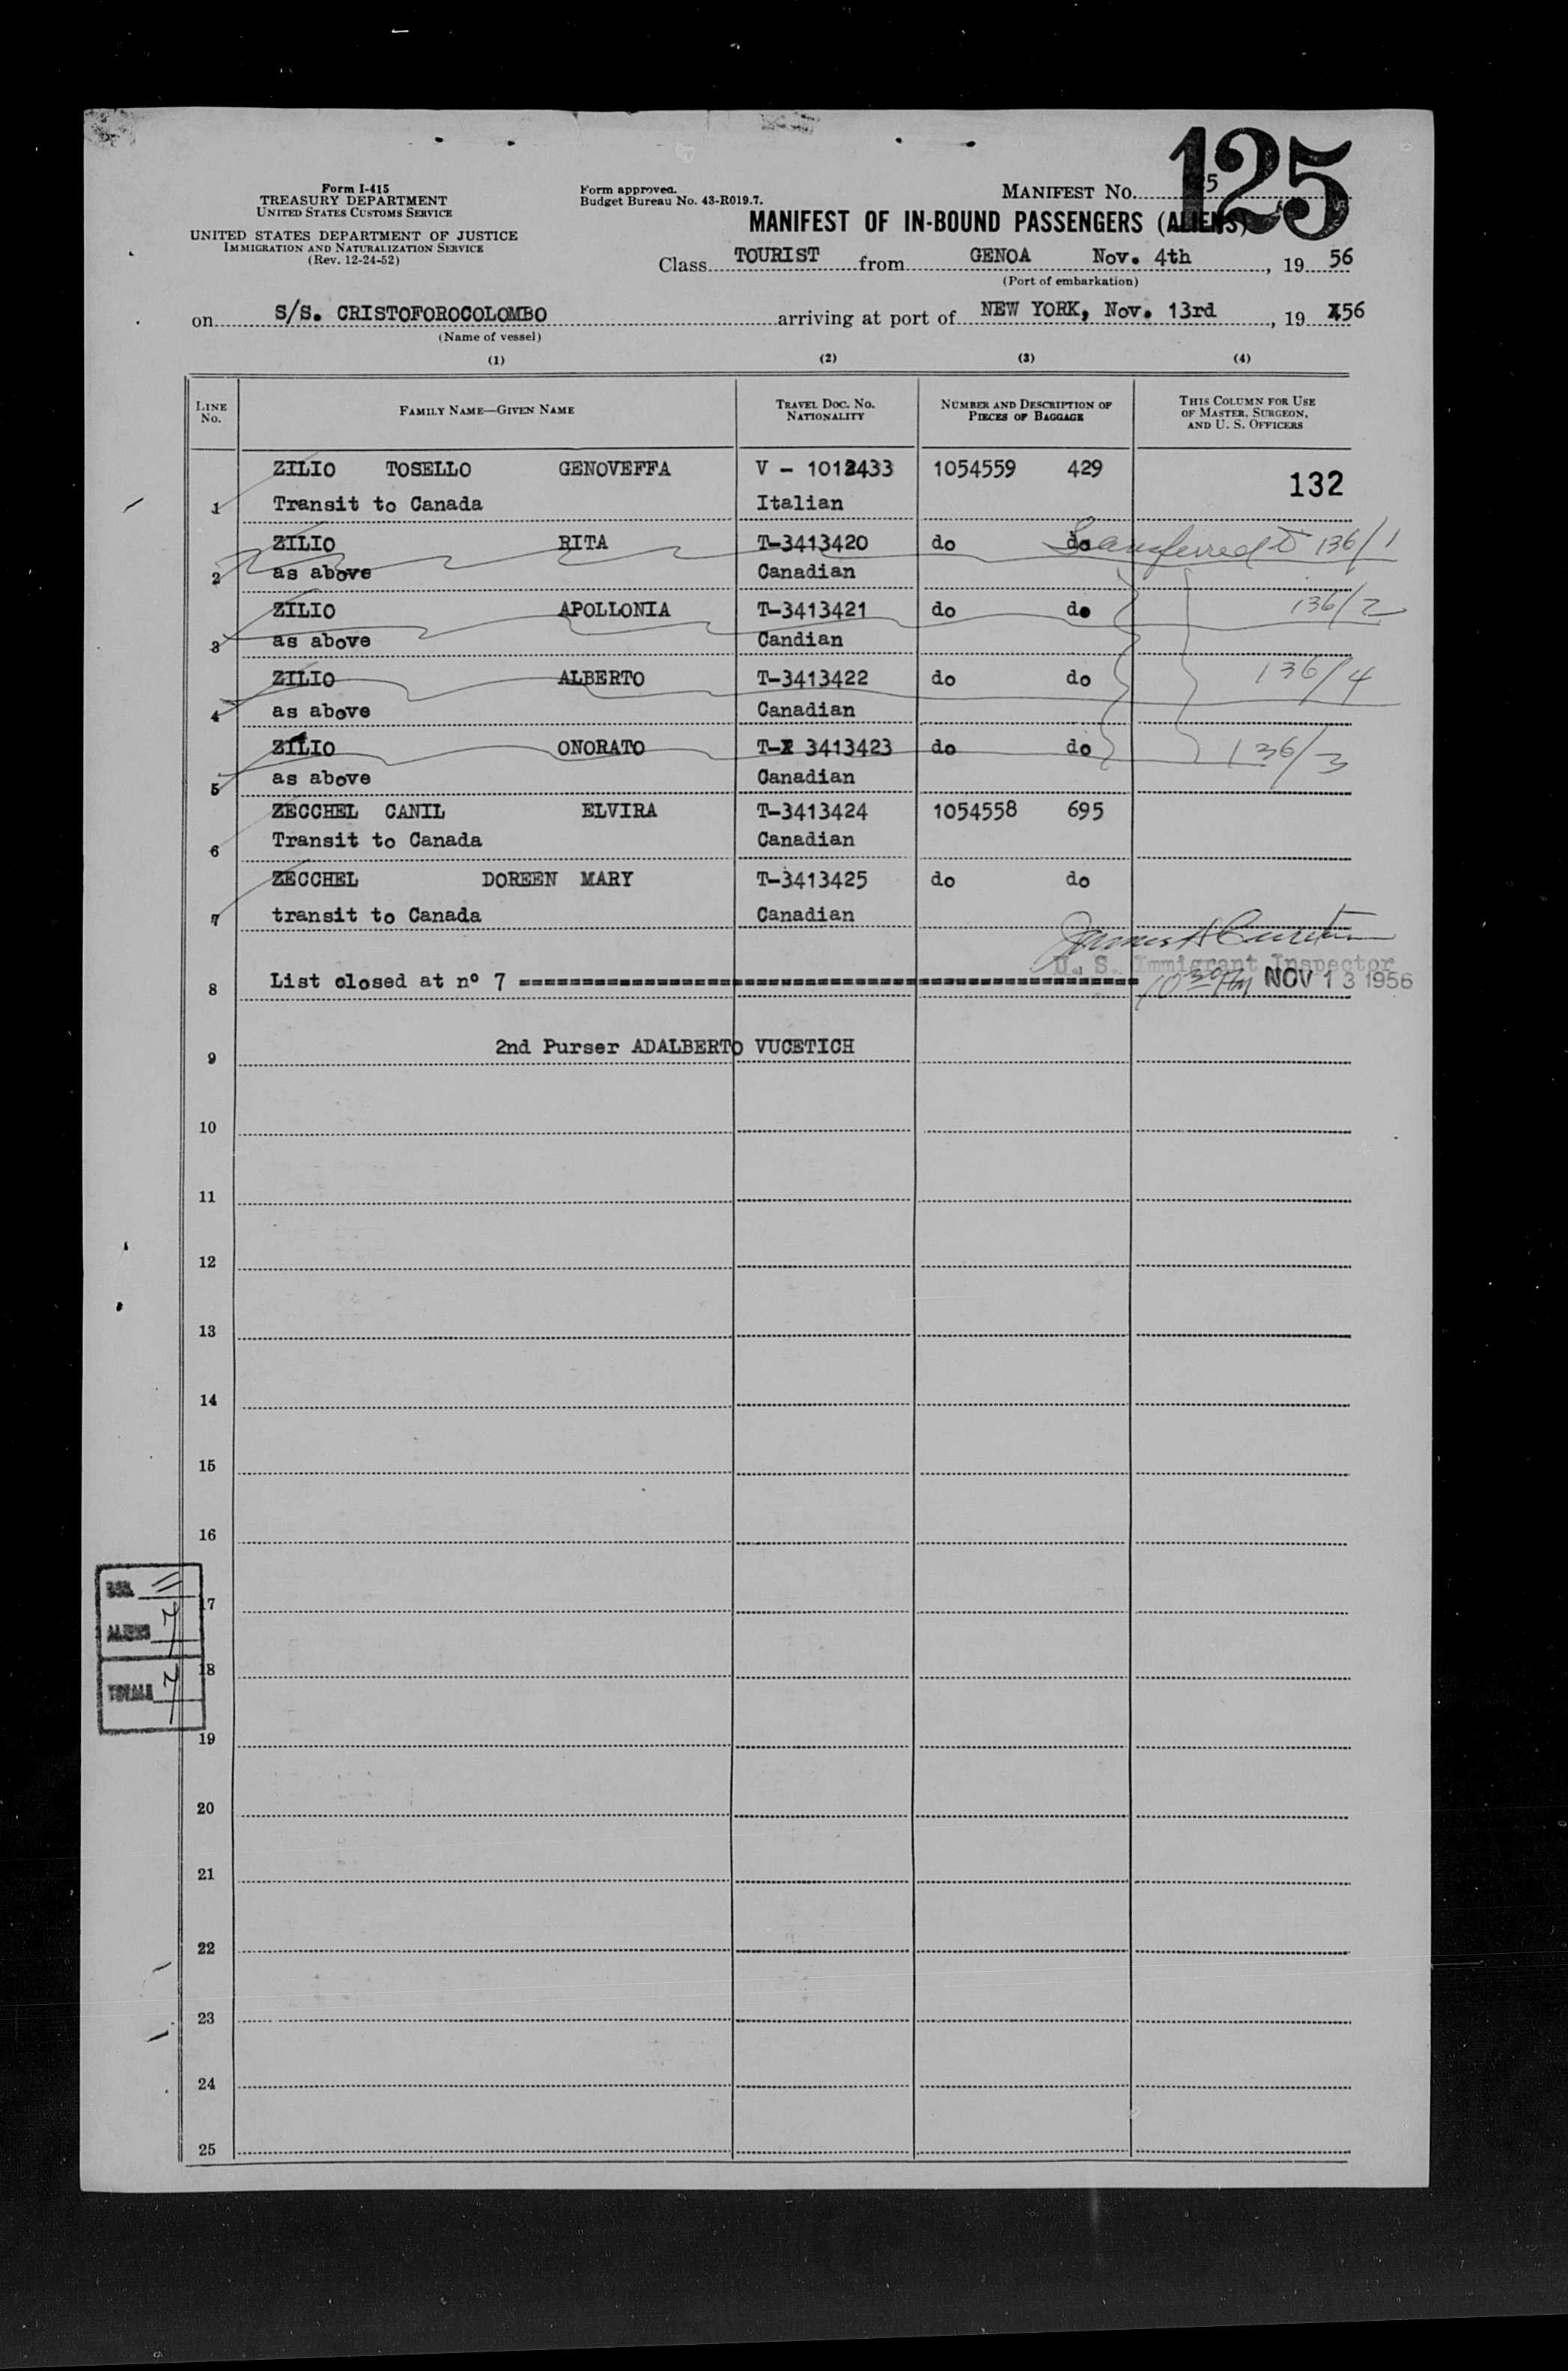 125
Form I-415
TREASURY DEPARTMENT
UNITED STATES CUSTOMS SERVICE
UNITED STATES DEPARTMENT OF JUSTICE
IMMIGRATION AND NATURALIZATION SERVICE
(Rev. 12-24-52)
Form approved.
Budget Bureau No. 43-R019.7.
MANIFEST NO. 5
MANIFEST OF IN-BOUND PASSENGERS (ALIENS)
Class TOURIST from GENOA Nov. 4th, 19 56
(Port of embarkation)
on S/S. CRISTOFOROCOLOMBO arriving at port of NEW YORK, Nov. 13rd, 19 56
(Name of vessel)
(1) (2) (3) (4)
LINE No. FAMILY NAME—GIVEN NAME TRAVEL DOC. NO. NATIONALITY NUMBER AND DESCRIPTION OF PIECES OF BAGGAGE THIS COLUMN FOR USE OF MASTER, SURGEON, AND U. S. OFFICERS
ZILIO TOSELLO GENOVEFFA V - 1012433 1054559 429 132
1 Transit to Canada Italian
ZILIO RITA T-3413420 do do Transferred to 136/1
2 as above Canadian
ZILIO APOLLONIA T-3413421 do do 136/2
3 as above Candian
ZILIO ALBERTO T-3413422 do do 136/4
4 as above Canadian
ZILIO ONORATO T- 3413423 do do 136/3
5 as above Canadian
ZECCHEL CANIL ELVIRA T-3413424 1054558 695
6 Transit to Canada Canadian
ZECCHEL DOREEN MARY T-3413425 do do
7 transit to Canada Canadian
U. S. Immigrant Inspector
8 List closed at nº 7 10 30 PM NOV 13 1956
9 2nd Purser ADALBERTO VUCETICH
10
11
12
13
14
15
16
17
18
19
20
21
22
23
24
25
ALIENS 7
TOTALS 7